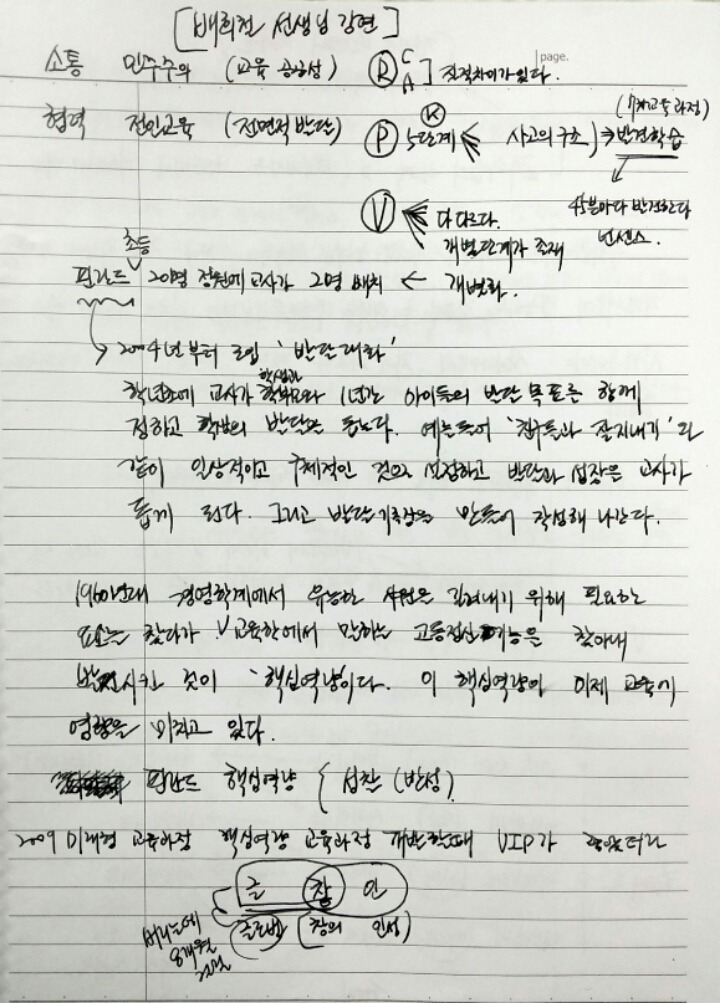 [배희철 선생님 강연]
page.
소통 민주주의 (교육 공공성) Ⓡ C A ] 질적차이가 있다.
(7차교육과정)
협력 전인교육 (전면적 발달) Ⓟ 5단계 Ⓚ 사고의 구조) → 발견학습
45분마다 발견한다
넌센스.
Ⓥ 다 다르다.
개별단계가 존재
개별화.
핀란드 초등 20명 정원에 교사가 2명 배치 ←
→ 2004년부터 도입 '발달대화'
학년초에 교사가 학생과 학부모와 1년간 아이들의 발달 목표를 함께
정하고 학생의 발달을 돕는다. 예를들어 '친구들과 잘지내기'와
같이 일상적이고 구체적인 것으로 설정하고 발달과 성장을 교사가
돕게 된다. 그리고 발달기록장을 만들어 작성해 나간다.
1960년대 경영학계에서 유능한 사원을 길러내기 위해 필요한
요소를 찾다가 교육학에서 말하는 고등정신기능을 찾아내
발전시킨 것이 '핵심역량'이다. 이 핵심역량이 이제 교육에
영향을 미치고 있다.
핀란드 핵심역량 { 성찰 (반성).
2009 미래형 교육과정 핵심역량 교육과정 개발할때 VIP가
글 창 인
글로벌 (창의 인성)
8개월